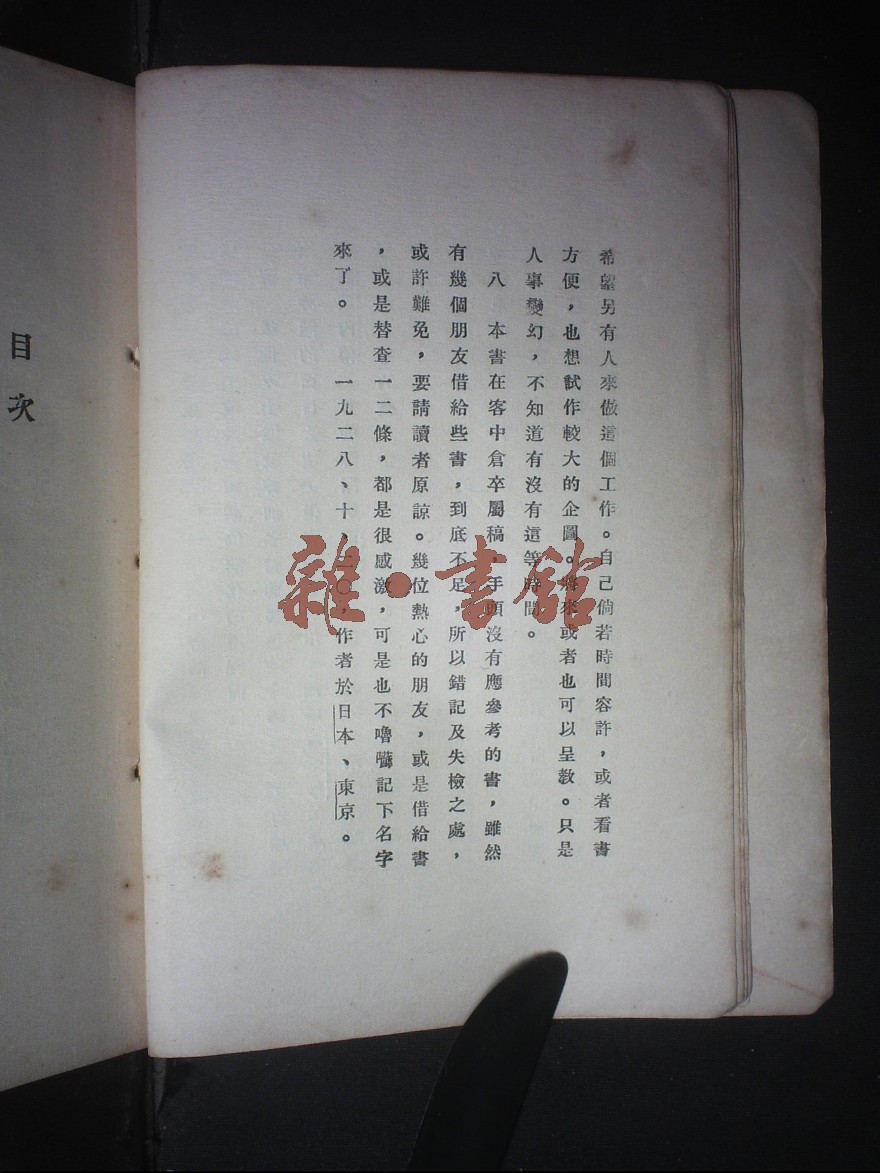 希望另有人來做這個工作。自己倘若時間容許，或者看書
方便，也想試作較大的企圖。將來或者也可以呈教。只是
人事變幻，不知道有沒有這等時間。
八　本書在客中倉卒屬稿，手頭沒有應參考的書，雖然
有幾個朋友借給些書，到底不足，所以錯記及失檢之處，
或許難免，要請讀者原諒。幾位熱心的朋友，或是借給書
，或是替查一二條，都是很感激，可是也不嚕囌記下名字
來了。　一九二八、十、二〇，作者於日本、東京。
目次
雜·書館